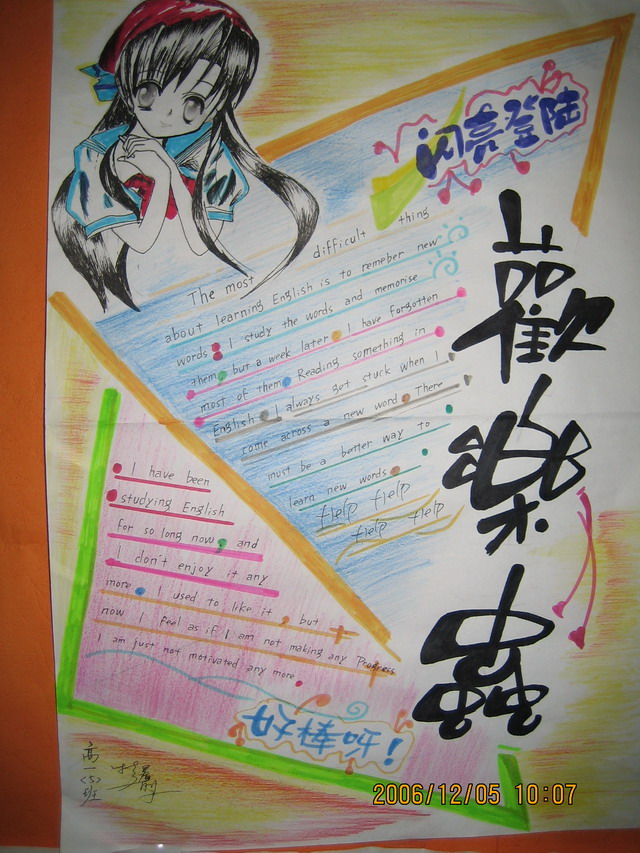 闪亮登陆
The most difficult thing
about learning English is to remeber new
words. I study the words and memorise
them, but a week later, I have forgotten
most of them. Reading something in
English, I always get stuck when I
come across a new word. There
must be a better way to
learn new words.
Help Help
Help Help
歡樂
I have been
studying English
for so long now, and
I don't enjoy it any
more. I used to like it, but
now I feel as if I am not making any Progress
I am just not motivated any more.
高一<5>班
2006/12/05 10:07